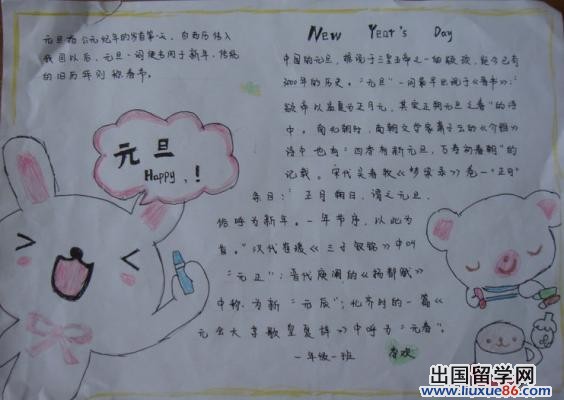 元旦为公元纪年的岁首第一天,自西历传入
我国以后,元旦一词便专用于新年,传统
的旧历年则称春节。
元旦
Happy!
New Year's Day
中国的元旦,据说于三皇五帝之一的颛顼,距今已有
3000年的历史。"元旦"一词最早出现于《晋书》:"
颛帝以孟夏正月为元,其实正朔元旦之春"的诗
中。南北朝时,南朝文学家萧子云的《介雅》
诗中也有"四季新元旦,万寿初春朝"的
记载。宋代吴自牧《梦粱录》卷一"正月"
条目:"正月朔日,谓之元旦,
俗呼为新年。一年节序,以此为
首。"汉代崔瑗《三子钗铭》中叫
"元正";晋代庾阐的《扬都赋》
中称为新"元辰";北齐时的一篇《
元会大享歌皇夏辞》中呼为"元春"。
一年级一班
出国留学网
www.liuxue86.com